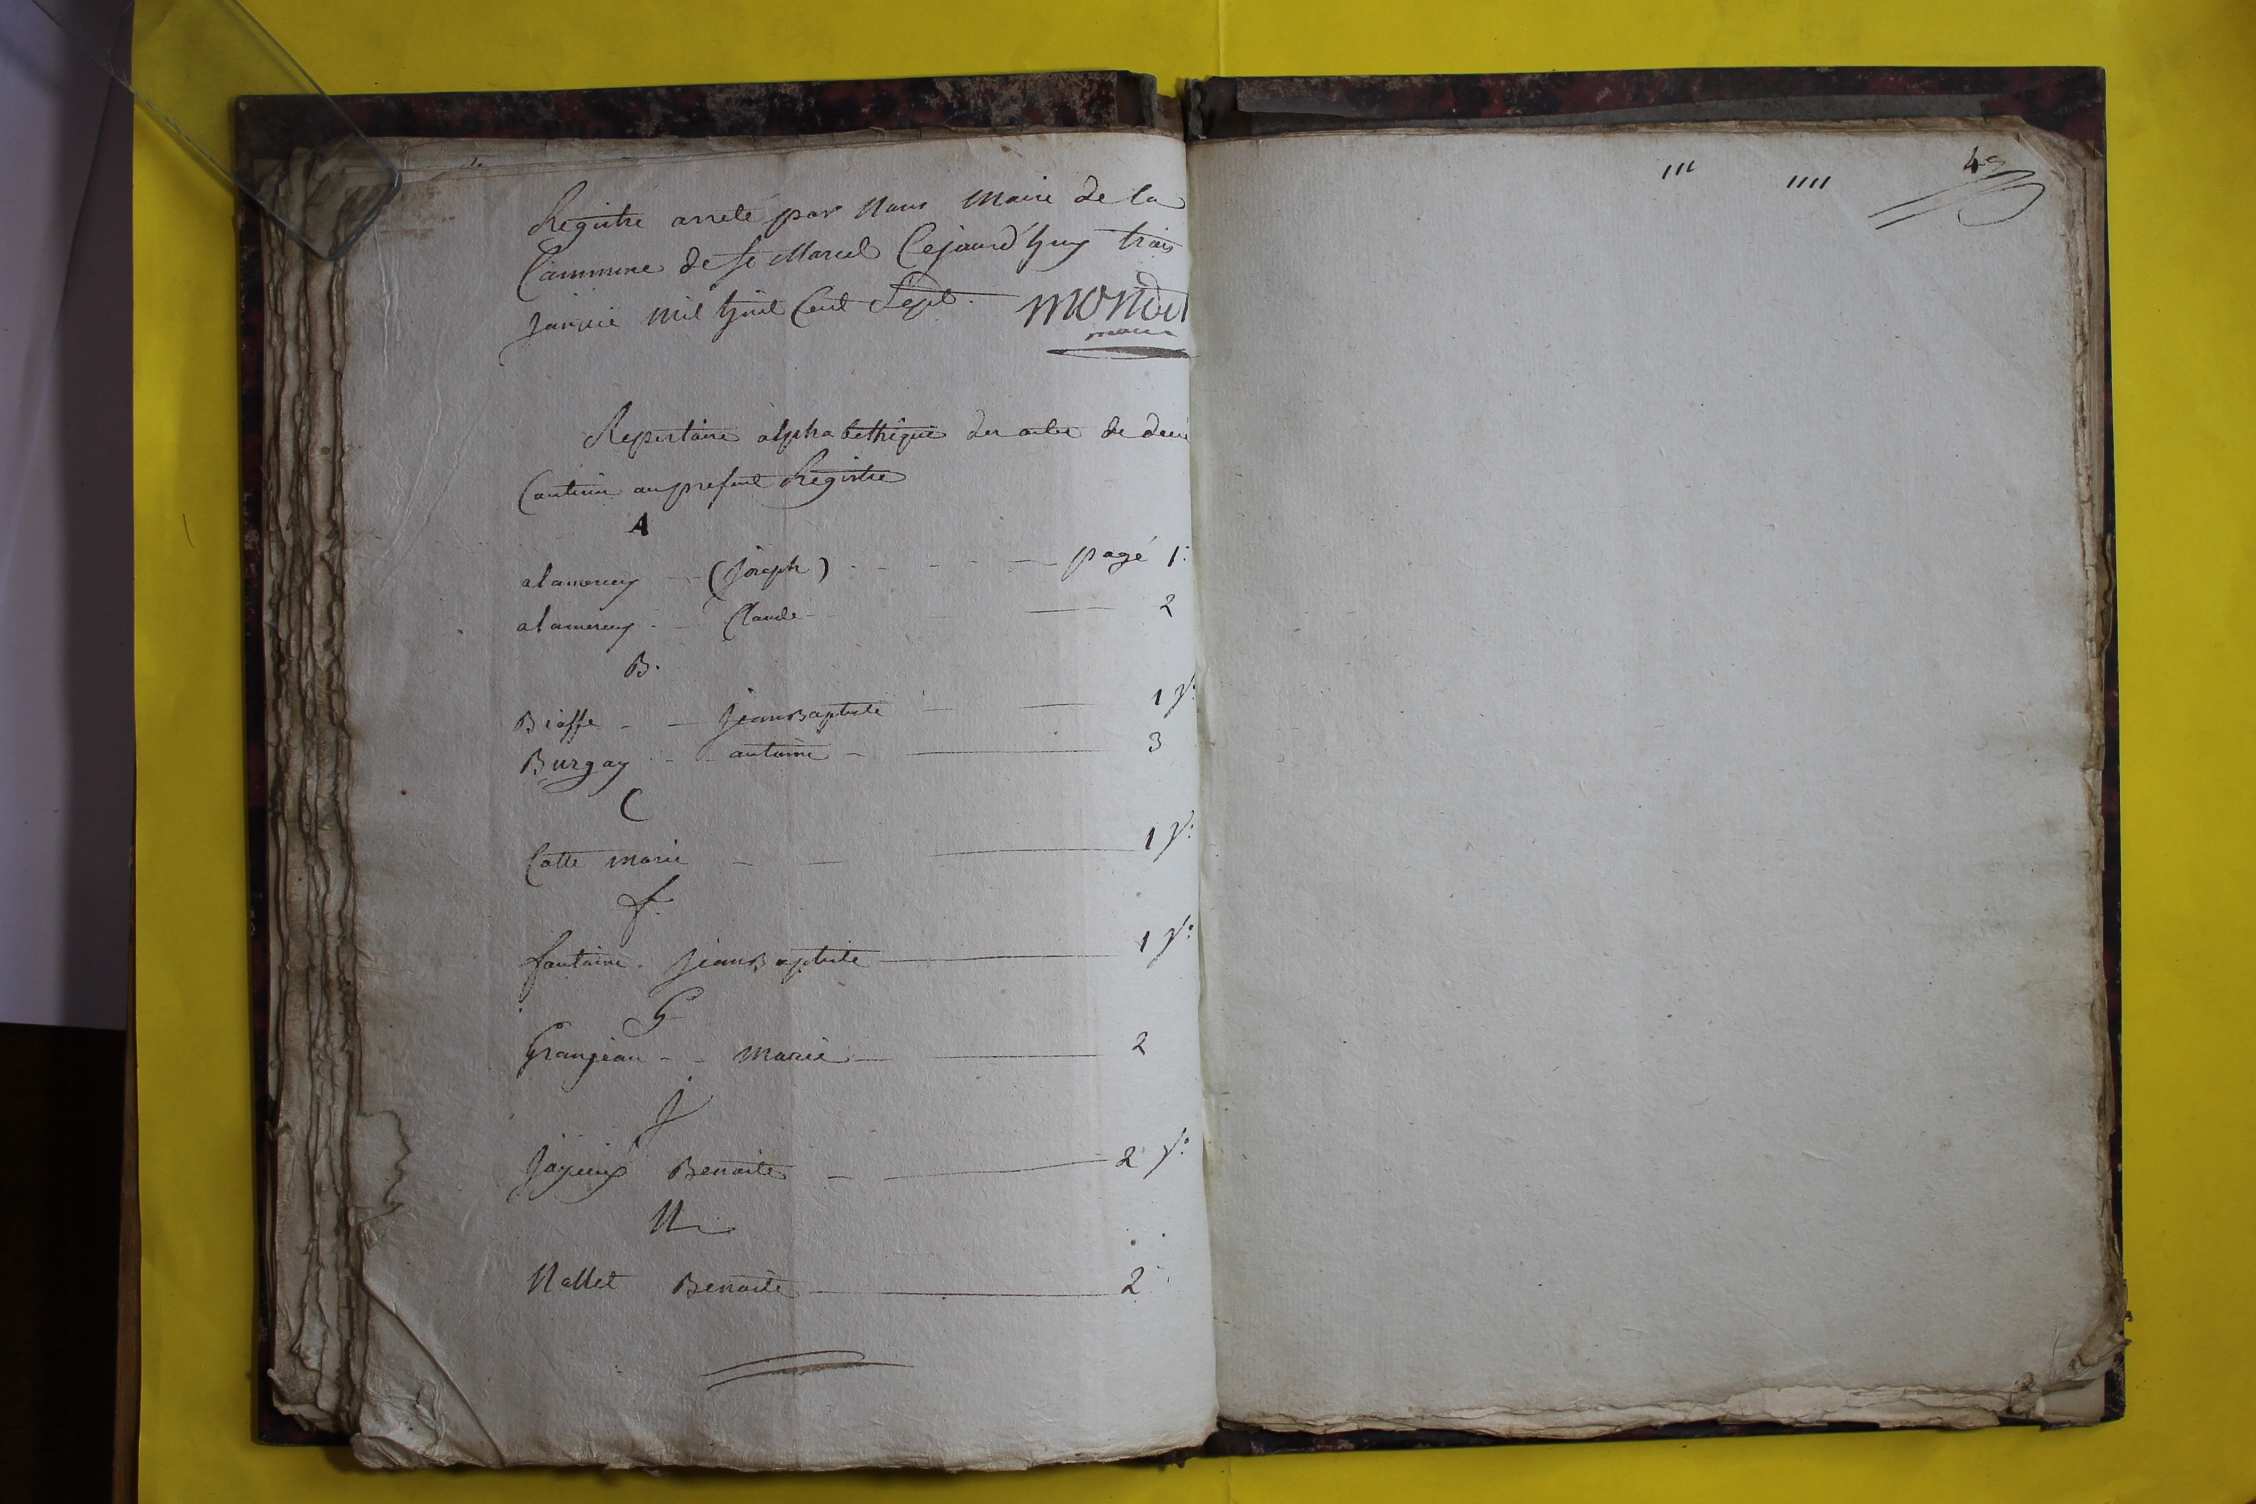 Registre arreté par Nous Maire de la
Commune de St Marcel Cejourd'huy trois
janvié mil huit Cent Sept. mondet
maire
Repertoire alphabethique des actes de decè
Contenu au present Registre
A
alamercery (joseph) page 1.
alamercery Claude 2
B.
Biasse jeanBaptiste 1 v°
Burgay antoine 3
C
Catte marie 1 v°
f.
fontaine. jeanBaptiste 1 v°
G
Granjean Marie 2
J
Joyeux Benoite 2 v°
N
Nallet Benoite 2
4e